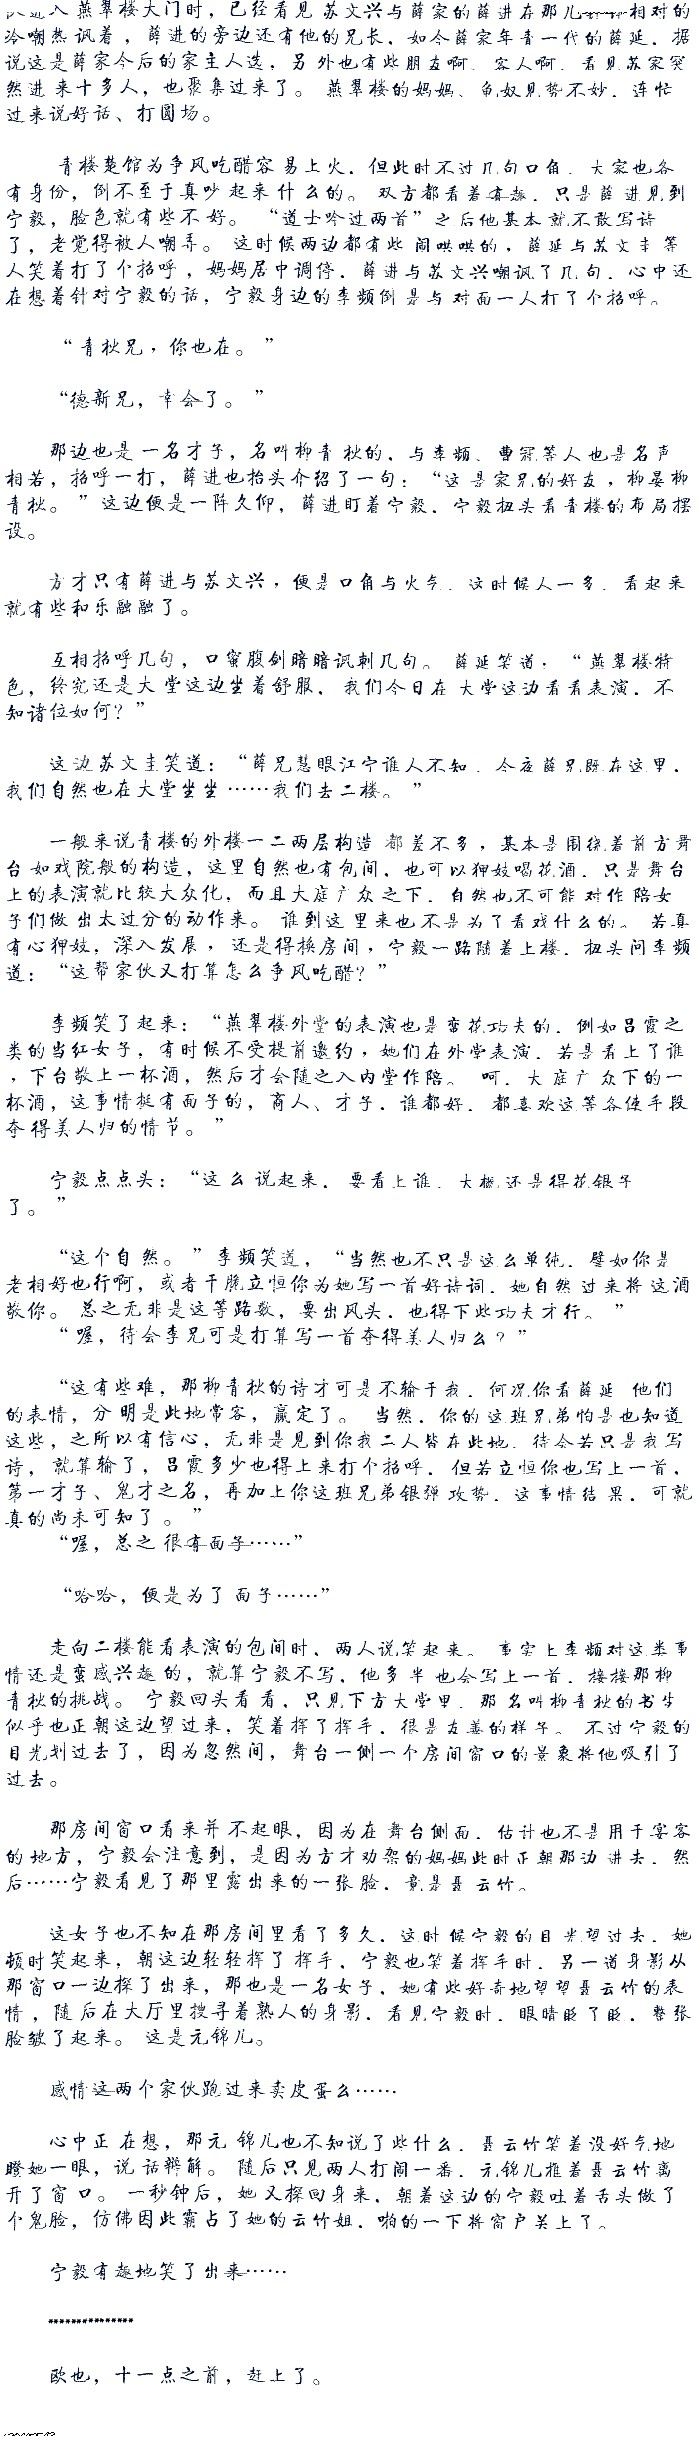 进入燕翠楼大门时，已经看见苏文兴与薛家的薛进在那儿 相对的
冷嘲热讽着，薛进的旁边还有他的兄长，如今薛家年青一代的薛延，据
说这是薛家今后的家主人选，另外也有些朋友啊、客人啊，看见苏家突
然进来十多人，也聚集过来了。燕翠楼的妈妈、龟奴见势不妙，连忙
过来说好话、打圆场。
青楼楚馆为争风吃醋容易上火，但此时不过几句口角，大家也各
有身份，倒不至于真吵起来什么的。双方都看着有趣，只是薛进见到
宁毅，脸色就有些不好。“道士吟过两首”之后他基本就不敢写诗
了，老觉得被人嘲弄。这时候两边都有些闹哄哄的，薛延与苏文圭等
人笑着打了个招呼，妈妈居中调停，薛进与苏文兴嘲讽了几句，心中还
在想着针对宁毅的话，宁毅身边的李频倒是与对面一人打了个招呼。
“青秋兄，你也在。”
“德新兄，幸会了。”
那边也是一名才子，名叫柳青秋的，与李频、曹冠等人也是名声
相若，招呼一打，薛进也抬头介绍了一句：“这是家兄的好友，柳晏柳
青秋。”这边便是一阵久仰，薛进盯着宁毅，宁毅扭头看青楼的布局摆
设。
方才只有薛进与苏文兴，便是口角与火气，这时候人一多，看起来
就有些和乐融融了。
互相招呼几句，口蜜腹剑暗暗讽刺几句。薛延笑道：“燕翠楼特
色，终究还是大堂这边坐着舒服，我们今日在大堂这边看看表演，不
知诸位如何？”
这边苏文圭笑道：“薛兄慧眼江宁谁人不知，今夜薛兄既在这里，
我们自然也在大堂坐坐……我们去二楼。”
一般来说青楼的外楼一二两层构造都差不多，基本是围绕着前方舞
台如戏院般的构造，这里自然也有包间，也可以狎妓喝花酒，只是舞台
上的表演就比较大众化，而且大庭广众之下，自然也不可能对作陪女
子们做出太过分的动作来。谁到这里来也不是为了看戏什么的。若真
有心狎妓，深入发展，还是得换房间，宁毅一路随着上楼，扭头问李频
道：“这帮家伙又打算怎么争风吃醋？”
李频笑了起来：“燕翠楼外堂的表演也是蛮花功夫的，例如吕霞之
类的当红女子，有时候不受提前邀约，她们在外堂表演，若是看上了谁
，下台敬上一杯酒，然后才会随之入内堂作陪。呵，大庭广众下的一
杯酒，这事情挺有面子的，商人、才子，谁都好，都喜欢这等各使手段
夺得美人归的情节。”
宁毅点点头：“这么说起来，要看上谁，大概还是得花银子
了。”
“这个自然。”李频笑道，“当然也不只是这么单纯，譬如你是
老相好也行啊，或者干脆立恒你为她写一首好诗词，她自然过来将这酒
敬你。总之无非是这等路数，要出风头，也得下些功夫才行。”
“喔，待会李兄可是打算写一首夺得美人归么？”
“这有些难，那柳青秋的诗才可是不输于我，何况你看薛延他们
的表情，分明是此地常客，赢定了。当然，你的这班兄弟怕是也知道
这些，之所以有信心，无非是见到你我二人皆在此地，待会若只是我写
诗，就算输了，吕霞多少也得上来打个招呼，但若立恒你也写上一首，
第一才子、鬼才之名，再加上你这班兄弟银弹攻势，这事情结果，可就
真的尚未可知了。”
“喔，总之很有面子……”
“哈哈，便是为了面子……”
走向二楼能看表演的包间时，两人说笑起来。事实上李频对这类事
情还是蛮感兴趣的，就算宁毅不写，他多半也会写上一首，接接那柳
青秋的挑战。宁毅回头看看，只见下方大堂里，那名叫柳青秋的书生
似乎也正朝这边望过来，笑着挥了挥手，很是友善的样子。不过宁毅的
目光划过去了，因为忽然间，舞台一侧一个房间窗口的景象将他吸引了
过去。
那房间窗口看来并不起眼，因为在舞台侧面，估计也不是用于宴客
的地方，宁毅会注意到，是因为方才劝架的妈妈此时正朝那边进去，然
后……宁毅看见了那里露出来的一张脸，竟是聂云竹。
这女子也不知在那房间里看了多久，这时候宁毅的目光望过去，她
顿时笑起来，朝这边轻轻挥了挥手，宁毅也笑着挥手时，另一道身影从
那窗口一边探了出来，那也是一名女子，她有些好奇地望望聂云竹的表
情，随后在大厅里搜寻着熟人的身影，看见宁毅时，眼睛眨了眨，整张
脸皱了起来。这是元锦儿。
感情这两个家伙跑过来卖皮蛋么……
心中正在想，那元锦儿也不知说了些什么，聂云竹笑着没好气地
瞪她一眼，说话辩解。随后只见两人打闹一番，元锦儿推着聂云竹离
开了窗口。一秒钟后，她又探回身来，朝着这边的宁毅吐着舌头做了
个鬼脸，仿佛因此霸占了她的云竹姐，啪的一下将窗户关上了。
宁毅有趣地笑了出来……
***************
欧也，十一点之前，赶上了。